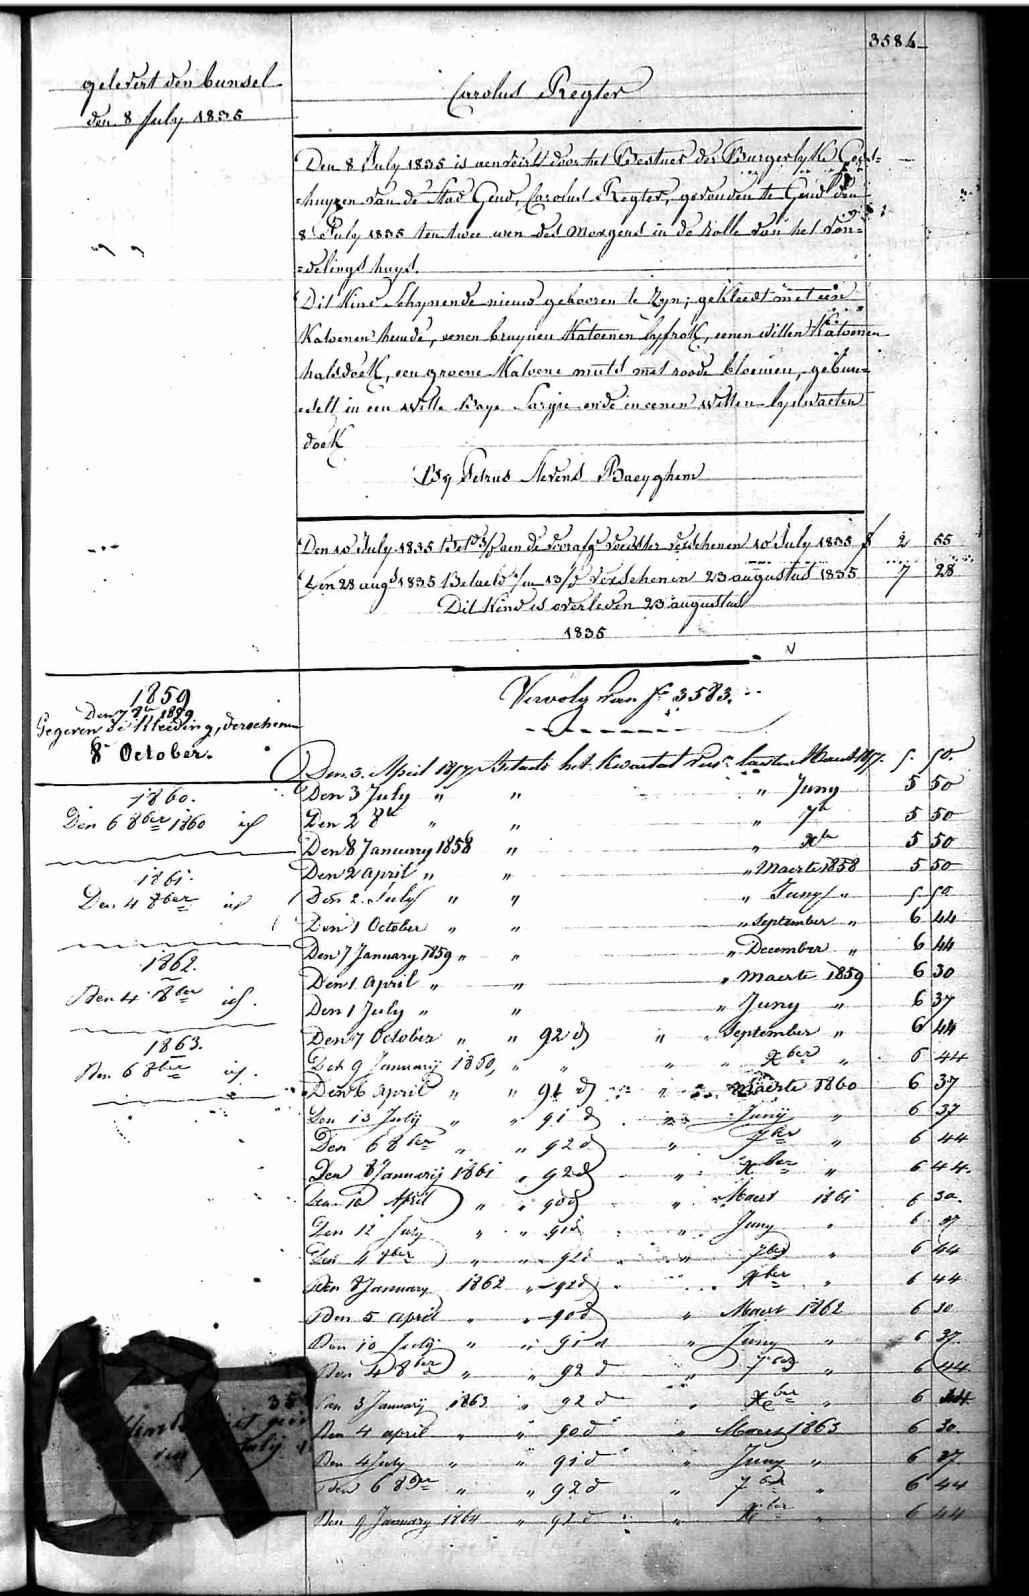 3584
gelevert den bunsel
den 8 July 1835
Carolus Regter
Den 8 July 1835 is aenveirt door het Bestuer der Burgerlyke Gods=
=huyzen van de Stad Gend, Carolus Regter, gevonden te Gend den
8 July 1835 ten twee uren des morgens in de rolle van het von=
=delings huys.
Dit Kind schynende nieuw gebooren te zyn; gekleedt met een
Katoenen hemde, eenen bruynen Katoenen lyfrok, eenen witten Katoenen
halsdoek, een groene Katoene muts met roode bloemen, gebun=
=delt in een witte baye Sargie ende in eenen witten lynwaeten
doek
By Petrus Stevens Baeyghem
Den 10 July 1835 aen de voorafg voedster verschenen 10 July 1835 f 2 55
Den 28 augt 1835 Betaelt verschenen 23 augustus 1835 7 28
Dit Kind is overleden 23 augustus
1835
1859
Den 7 8br 1859
Gegeven de Kleeding, verschenen
8 October.
Vervolg van f° 3583.
Den 3. April 1857 Betaelt het kwartael Maert 1857. 5. 50.
Den 3 July " " " Juny 5 50
Den 2 8br " " " 7br 5 50
Den 8 January 1858 " " Xbr 5 50
Den 2 april " " " Maerte 1858 5 50
Den 2. July " " " Juny " 5 50
Den 1 October " " " September " 6 44
Den 7 January 1859 " " " December " 6 44
Den 1 april " " " Maerte 1859 6 30
Den 1 July " " " Juny " 6 37
Den 7 October " " 92 d " " September " 6 44
Den 9 January 1860, " " " " Xber " 6 44
Den 6 April " " 91 d " " Maerte 1860 6 37
Den 13 July " " 91 d " Juny " 6 37
Den 6 8ber " " 92 d " 7ber " 6 44
Den 8 January 1861 " 92 d " Xber " 6 44.
Den 10 April " " 90 d " Maert 1861 6 30.
Den 12 July " " 91 d " Juny " 6 37
Den 4 8ber " " 92 d " 7ber " 6 44
Den 8 January 1862 " 92 d " Xber " 6 44
Den 5 april " " 90 d " Maert 1862 6 30
Den 10 July " " 91 d " Juny " 6 37.
Den 4 8ber " " 92 d " 7ber " 6 44
Den 3 January 1863 " 92 d " Xber " 6 44
Den 4 april " " 90 d " Maert 1863 6 30.
Den 4 July " " 91 d " Juny " 6 37
Den 6 8ber " " 92 d " 7ber " 6 44
Den 9 January 1864 " 92 d " Xber " 6 44
1860.
Den 6 8ber 1860 id
1861.
Den 4 8ber id
1862.
Den 4 8ber id.
1863.
Den 6 8ber id.
July